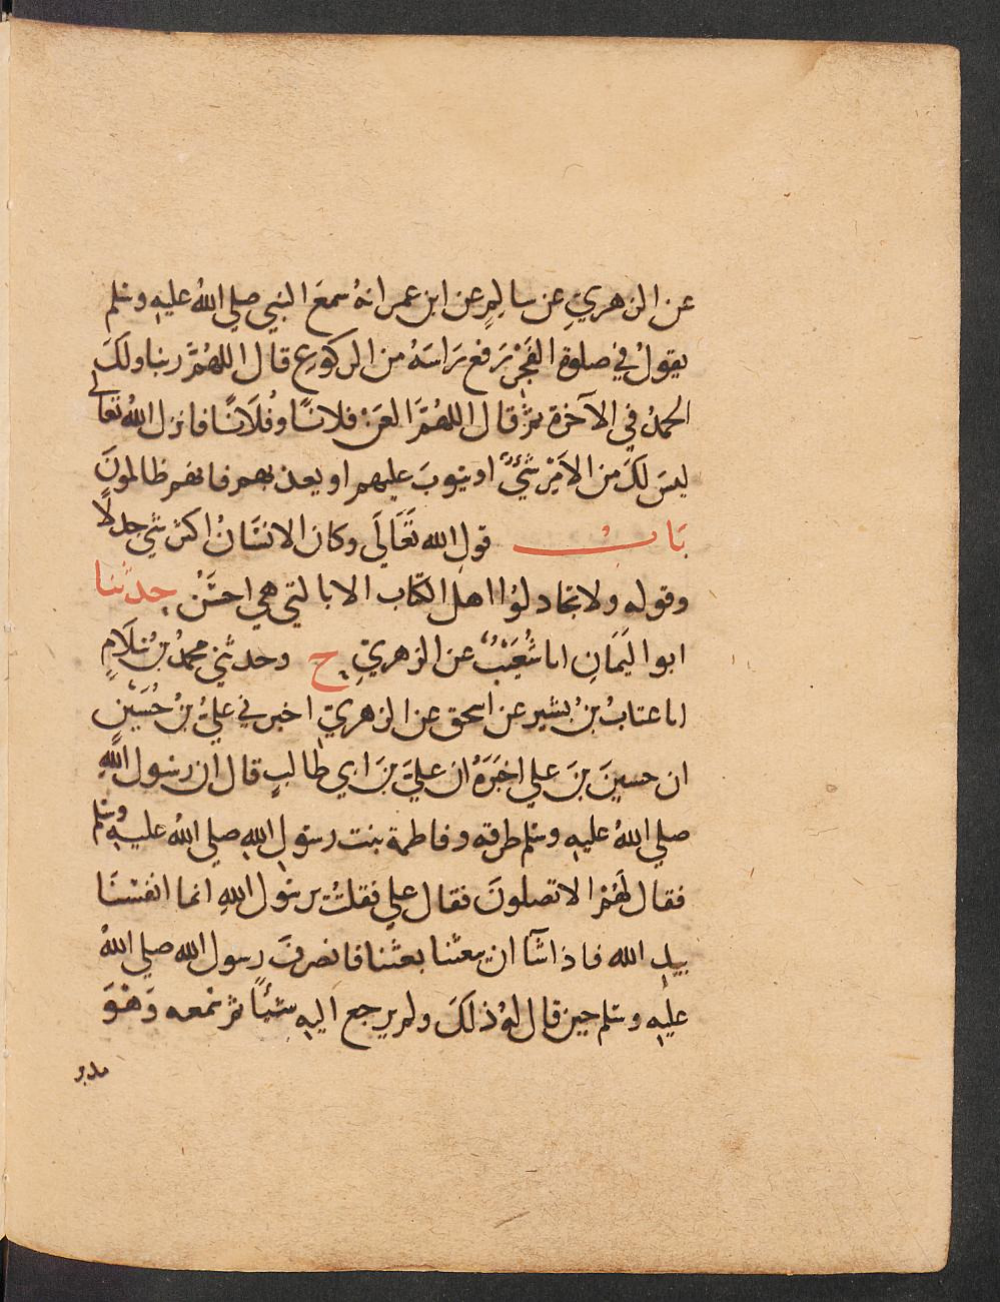 عن الزهريِ عن سالِمٍ عن ابن عمر انهُ سمعَ النبي صلي اللهُ عليهِ وسلم
يقولُ في صلوة الفَجْرِ رَفع رَاسَهُ من الركوعِ قال اللهُمَّ ربنا ولكَ
الحمدُ في الآخرة ثمَّ قال اللهُمَّ العَنْ فلانًا وفُلَانًا فانزل اللهُ تعالى
ليسَ لكَ من الاَمْرِ شَيْءٌ او يتوبَ عليهم او يعذبهم فانهم ظالمونَ
بَاب قولِ الله تَعَالَى وكان الانسَانُ اكثر شيْ جدلًا
وقوله ولا تجادلُوا اهل الكتاب الا بالتي هي احسَنُ حدثنا
ابو اليَمَانِ انا شُعَيْبٌ عن الزهريِ ح وحدثني محمدُ بنُ سَلَامٍ
انا عتابُ بنُ بشير عن اسحق عن الزهري اخبرني عليُ بنُ حُسَينٍ
ان حسينَ بنَ علي اخبَرَهُ ان عليَ بنَ ابي طالبٍ قال ان رسول اللهِ
صلي اللهُ عليهِ وسلم طرقه وفاطمة بنت رسولِ اللهِ صلي اللهُ عليهِ وسلم
فقال لَهُمْ الا تصلونَ فقال علي فقلتُ يرسُول اللهِ انما انفسُنَا
بيدِ الله فاذا شآ ان يبعثنا بعثنا فانصرفَ رسول الله صلي اللهُ
عليهِ وسلم حين قال لهُ ذلكَ ولم يرجع اليهِ شيئًا ثم سمعه وَهْوَ
مدبر